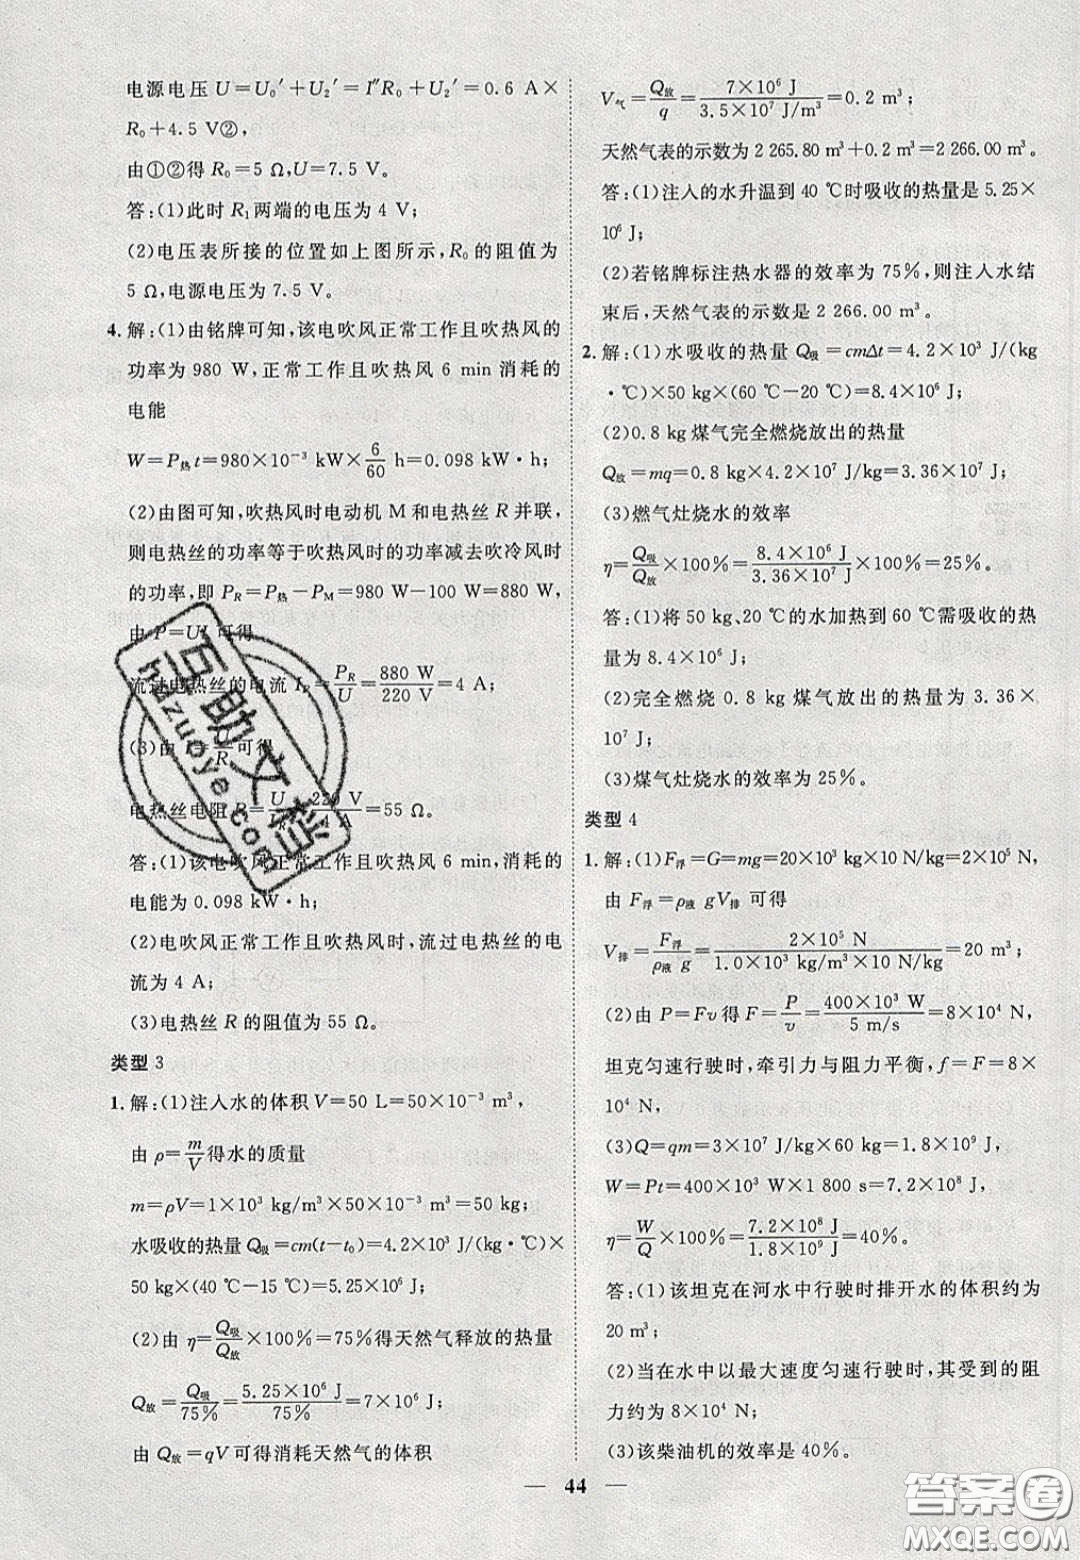 电源电压 U=U₀′+U₂′=I″R₀+U₂′=0.6 A×
R₀+4.5 V②,
由①②得 R₀=5 Ω,U=7.5 V。
答:(1)此时 R₁两端的电压为 4 V;
(2)电压表所接的位置如上图所示,R₀的阻值为
5 Ω,电源电压为 7.5 V。
4. 解:(1)由铭牌可知,该电吹风正常工作且吹热风的
功率为 980 W,正常工作且吹热风 6 min 消耗的
电能
W=P热t=980×10⁻³ kW×6/60 h=0.098 kW·h;
(2)由图可知,吹热风时电动机 M 和电热丝 R 并联,
则电热丝的功率等于吹热风时的功率减去吹冷风时
的功率,即 P_R=P热-P_M=980 W-100 W=880 W,
由 P=UI 可得
流过电热丝的电流 I_R=P_R/U=880 W/220 V=4 A;
(3)由 I=U/R可得
电热丝电阻 R=U/I_R=220 V/4 A=55 Ω。
答:(1)该电吹风正常工作且吹热风 6 min,消耗的
电能为 0.098 kW·h;
(2)电吹风正常工作且吹热风时,流过电热丝的电
流为 4 A;
(3)电热丝 R 的阻值为 55 Ω。
类型 3
1. 解:(1)注入水的体积 V=50 L=50×10⁻³ m³,
由 ρ=m/V得水的质量
m=ρV=1×10³ kg/m³×50×10⁻³ m³=50 kg;
水吸收的热量 Q吸=cm(t-t₀)=4.2×10³ J/(kg·℃)×
50 kg×(40 ℃-15 ℃)=5.25×10⁶ J;
(2)由 η=Q吸/Q放×100%=75%得天然气释放的热量
Q放=Q吸/75%=5.25×10⁶ J/75%=7×10⁶ J
由 Q放=qV 可得消耗天然气的体积
V气=Q放/q=7×10⁶ J/3.5×10⁷ J/m³=0.2 m³;
天然气表的示数为 2 265.80 m³+0.2 m³=2 266.00 m³。
答:(1)注入的水升温到 40 ℃时吸收的热量是 5.25×
10⁶ J;
(2)若铭牌标注热水器的效率为 75%,则注入水结
束后,天然气表的示数是 2 266.00 m³。
2. 解:(1)水吸收的热量 Q吸=cmΔt=4.2×10³ J/(kg
·℃)×50 kg×(60 ℃-20 ℃)=8.4×10⁶ J;
(2)0.8 kg煤气完全燃烧放出的热量
Q放=mq=0.8 kg×4.2×10⁷ J/kg=3.36×10⁷ J;
(3)燃气灶烧水的效率
η=Q吸/Q放×100%=8.4×10⁶ J/3.36×10⁷ J×100%=25%。
答:(1)将 50 kg、20 ℃的水加热到 60 ℃需吸收的热
量为 8.4×10⁶ J;
(2)完全燃烧 0.8 kg 煤气放出的热量为 3.36×
10⁷ J;
(3)煤气灶烧水的效率为 25%。
类型 4
1. 解:(1)F浮=G=mg=20×10³ kg×10 N/kg=2×10⁵ N,
由 F浮=ρ液 gV排 可得
V排=F浮/ρ液 g=2×10⁵ N/1.0×10³ kg/m³×10 N/kg=20 m³;
(2)由 P=Fv 得 F=P/v=400×10³ W/5 m/s=8×10⁴ N,
坦克匀速行驶时,牵引力与阻力平衡,f=F=8×
10⁴ N,
(3)Q=qm=3×10⁷ J/kg×60 kg=1.8×10⁹ J,
W=Pt=400×10³ W×1 800 s=7.2×10⁸ J,
η=W/Q×100%=7.2×10⁸ J/1.8×10⁹ J×100%=40%。
答:(1)该坦克在河水中行驶时排开水的体积约为
20 m³;
(2)当在水中以最大速度匀速行驶时,其受到的阻
力约为 8×10⁴ N;
(3)该柴油机的效率是 40%。
44
互助文档
huzuoye.com
答案圈
MXQE.COM